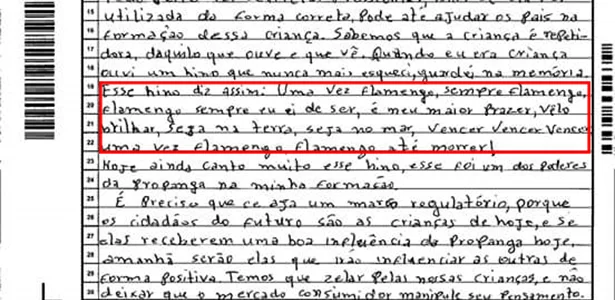 15 utilizada da forma correta, pode até ajudar os pais na
16 formação dessa criança. Sabemos que a criança é repeti-
17 dora, daquilo que ouve e que vê. Quando eu era criança
18 ouvi um hino que nunca mais esqueci, guardei na memória.
19 Esse hino diz assim: Uma vez flamengo, sempre flamengo,
20 flamengo sempre eu ei de ser, é meu maior prazer, vêlo
21 brilhar, seja na terra, seja no mar, vencer vencer vencer
22 uma vez flamengo, flamengo até morrer!
23 Hoje ainda canto muito esse hino, esse foi um dos poderes
24 da propanga na minha formação.
25 É preciso que ce aja um marco regulatório, porque
26 os cidadãos do futuro são as crianças de hoje, e se
27 elas receberem uma boa influência da propanga hoje,
28 amanhã serão elas que irão influenciar as outras de
29 forma positiva. Temos que zelar pelas nossas crianças, e não
30 deixar que o mercado consumidor manipule seu pensamento.